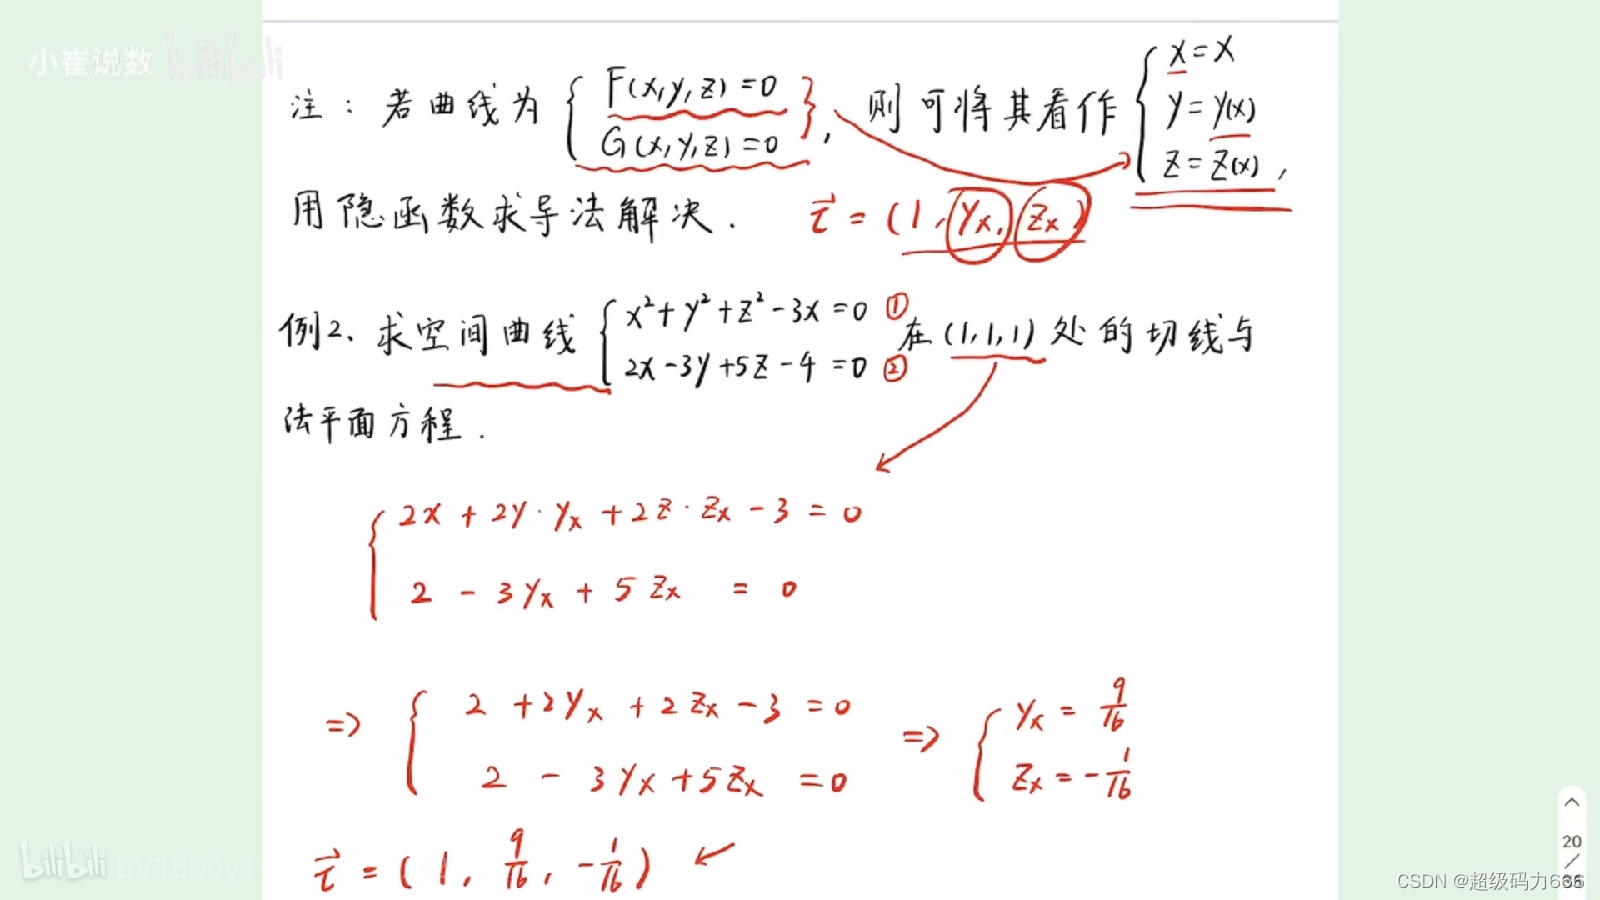 小崔说数 bilibili
注：若曲线为 { F(x,y,z)=0 G(x,y,z)=0 }，则可将其看作 { x=x y=y(x) z=z(x)，
用隐函数求导法解决. τ⃗ = (1, yₓ, zₓ)
例2、求空间曲线 { x²+y²+z²-3x=0 ① 2x-3y+5z-4=0 ② 在(1,1,1)处的切线与
法平面方程.
{ 2x + 2y·yₓ + 2z·zₓ - 3 = 0
2 - 3yₓ + 5zₓ = 0
=> { 2 + 2yₓ + 2zₓ - 3 = 0 => { yₓ = 9/16
2 - 3yₓ + 5zₓ = 0 zₓ = -1/16
τ⃗ = (1, 9/16, -1/16)
bilibili BV18b4y1
20
/
36
CSDN @超级码力666